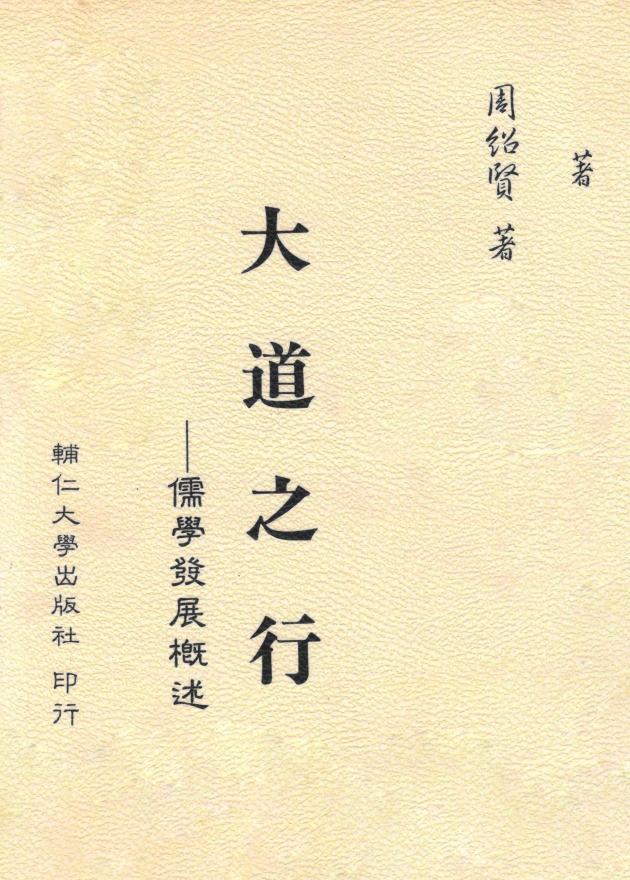 著
周紹賢 著
大道之行
—儒學發展概述
輔仁大學出版社 印行